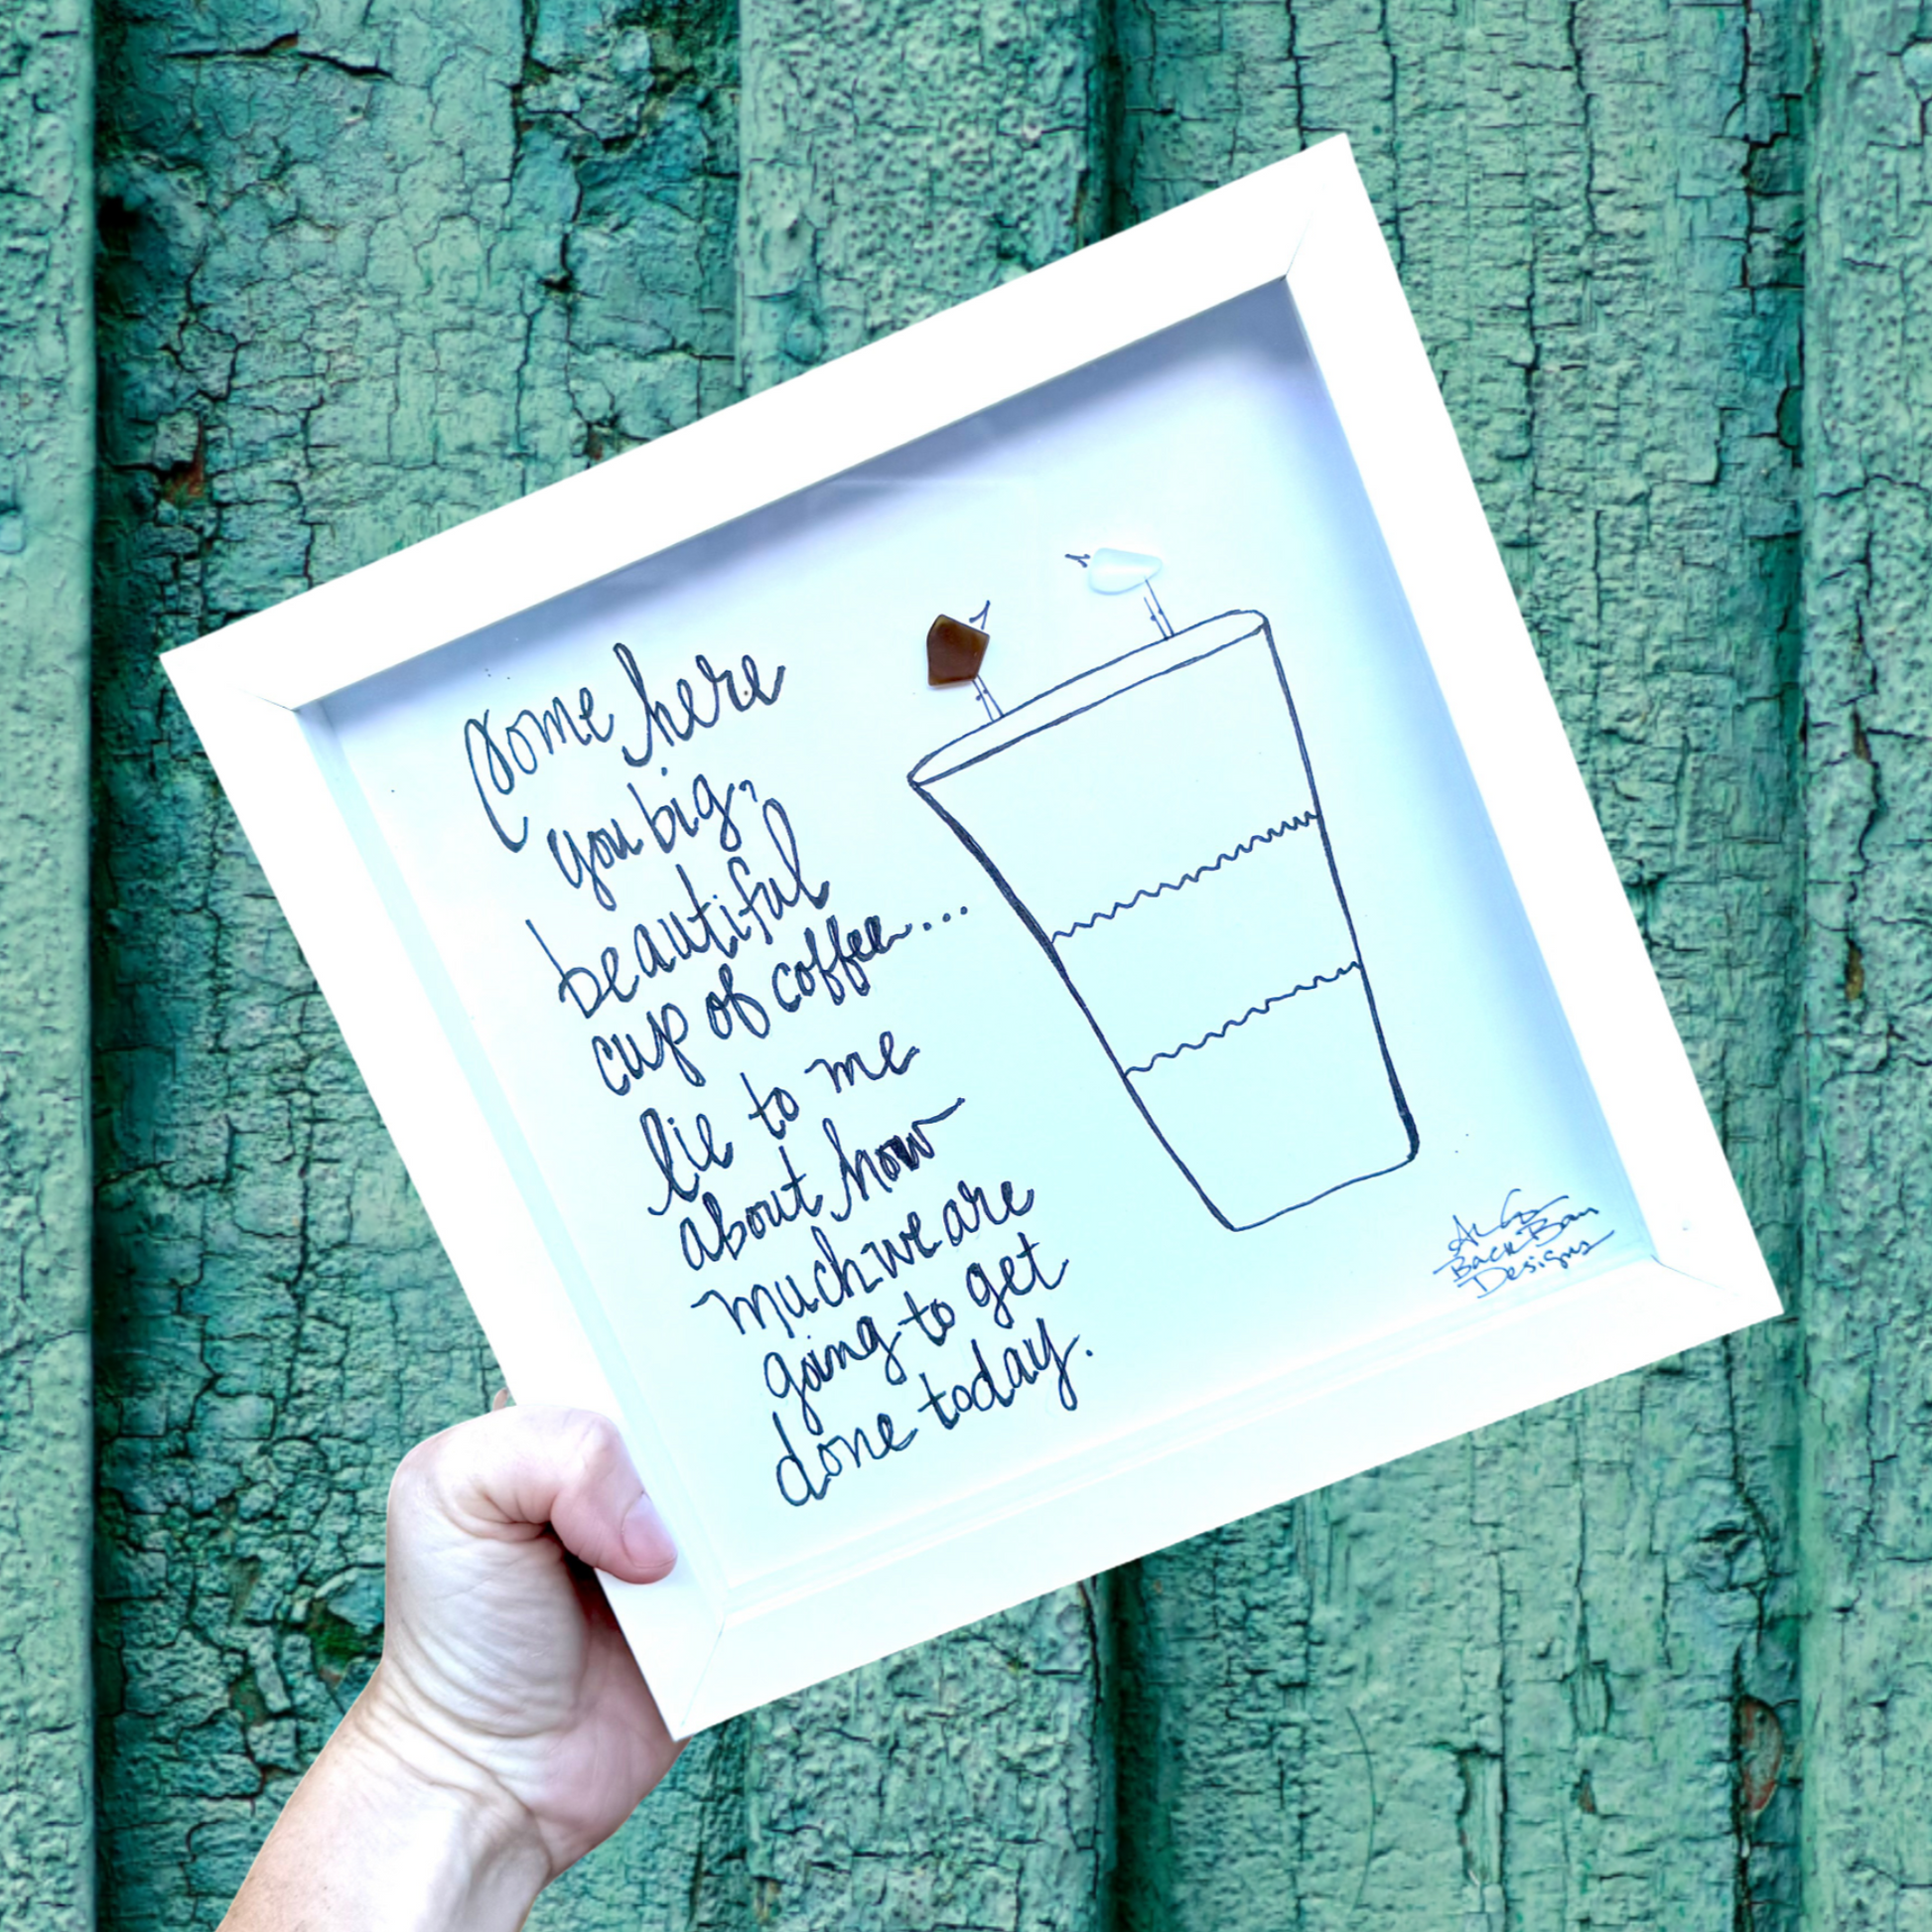 Come here
you big,
beautiful
cup of coffee....
lie to me
about how
much we are
going to get
done today.
Back Bay
Designs